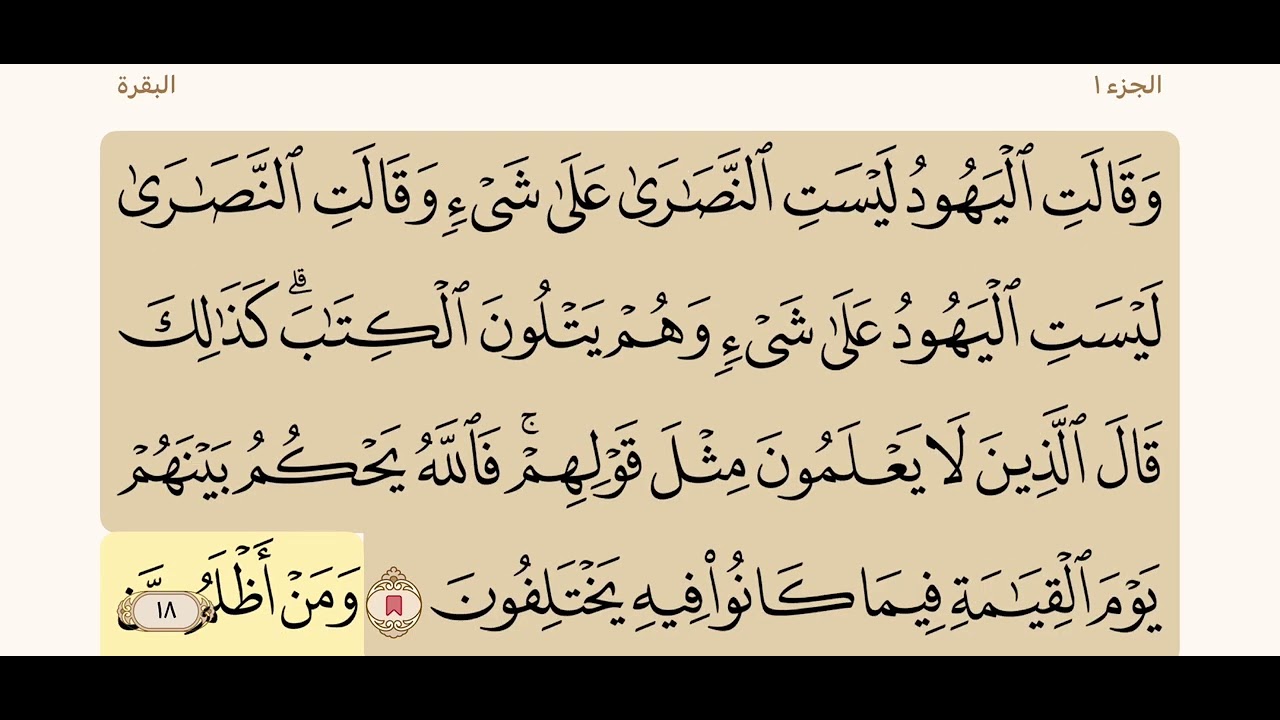 الجزء ١
البقرة
وَقَالَتِ ٱلْيَهُودُ لَيْسَتِ ٱلنَّصَـٰرَىٰ عَلَىٰ شَىْءٍ وَقَالَتِ ٱلنَّصَـٰرَىٰ
لَيْسَتِ ٱلْيَهُودُ عَلَىٰ شَىْءٍ وَهُمْ يَتْلُونَ ٱلْكِتَـٰبَ ۗ كَذَٰلِكَ
قَالَ ٱلَّذِينَ لَا يَعْلَمُونَ مِثْلَ قَوْلِهِمْ ۚ فَٱللَّهُ يَحْكُمُ بَيْنَهُمْ
يَوْمَ ٱلْقِيَـٰمَةِ فِيمَا كَانُوا۟ فِيهِ يَخْتَلِفُونَ وَمَنْ أَظْلَمُ
١٨